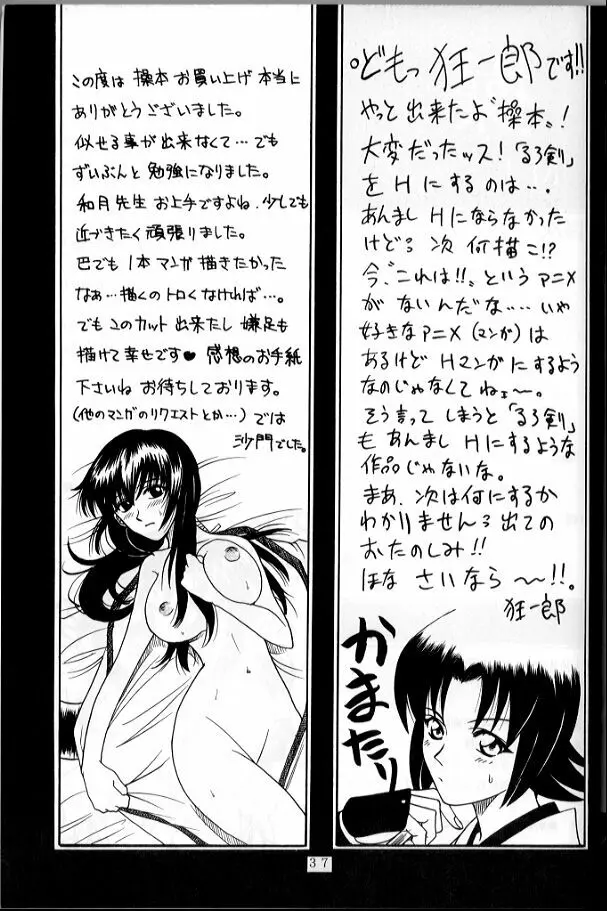 どもっ 狂一郎です!!
やっと出来たよ“操本”!
大変だったッス!「るろ剣」
をHにするのは…。
あんましHにならなかった
けどろ 次 何描こ!?
今、“これは!!”というアニメ
がないんだな……いや
好きなアニメ(マンガ)は
あるけどHマンガにするよう
なのじゃなくてねェ〜。
そう言ってしまうと「るろ剣」
もあんましHにするような
作品じゃないな。
まあ、次は何にするか
わかりませんろ出ての
おたのしみ!!
ほな さいなら 〜!!。
狂一郎
かまたり
この度は 操本 お買い上げ 本当に
ありがとうございました。
似せる事が出来なくて…でも
ずいぶんと勉強になりました。
和月先生 お上手ですよね、少しでも
近づきたく頑張りました。
巴でも1本マンガ描きたかった
なぁ…描くのトロくなければ…。
でもこのカット出来たし 嫌足も
描けて幸せです♥ 感想のお手紙
下さいね お待ちしております。
(他のマンガのリクエストとか…)では
沙門でした。
37